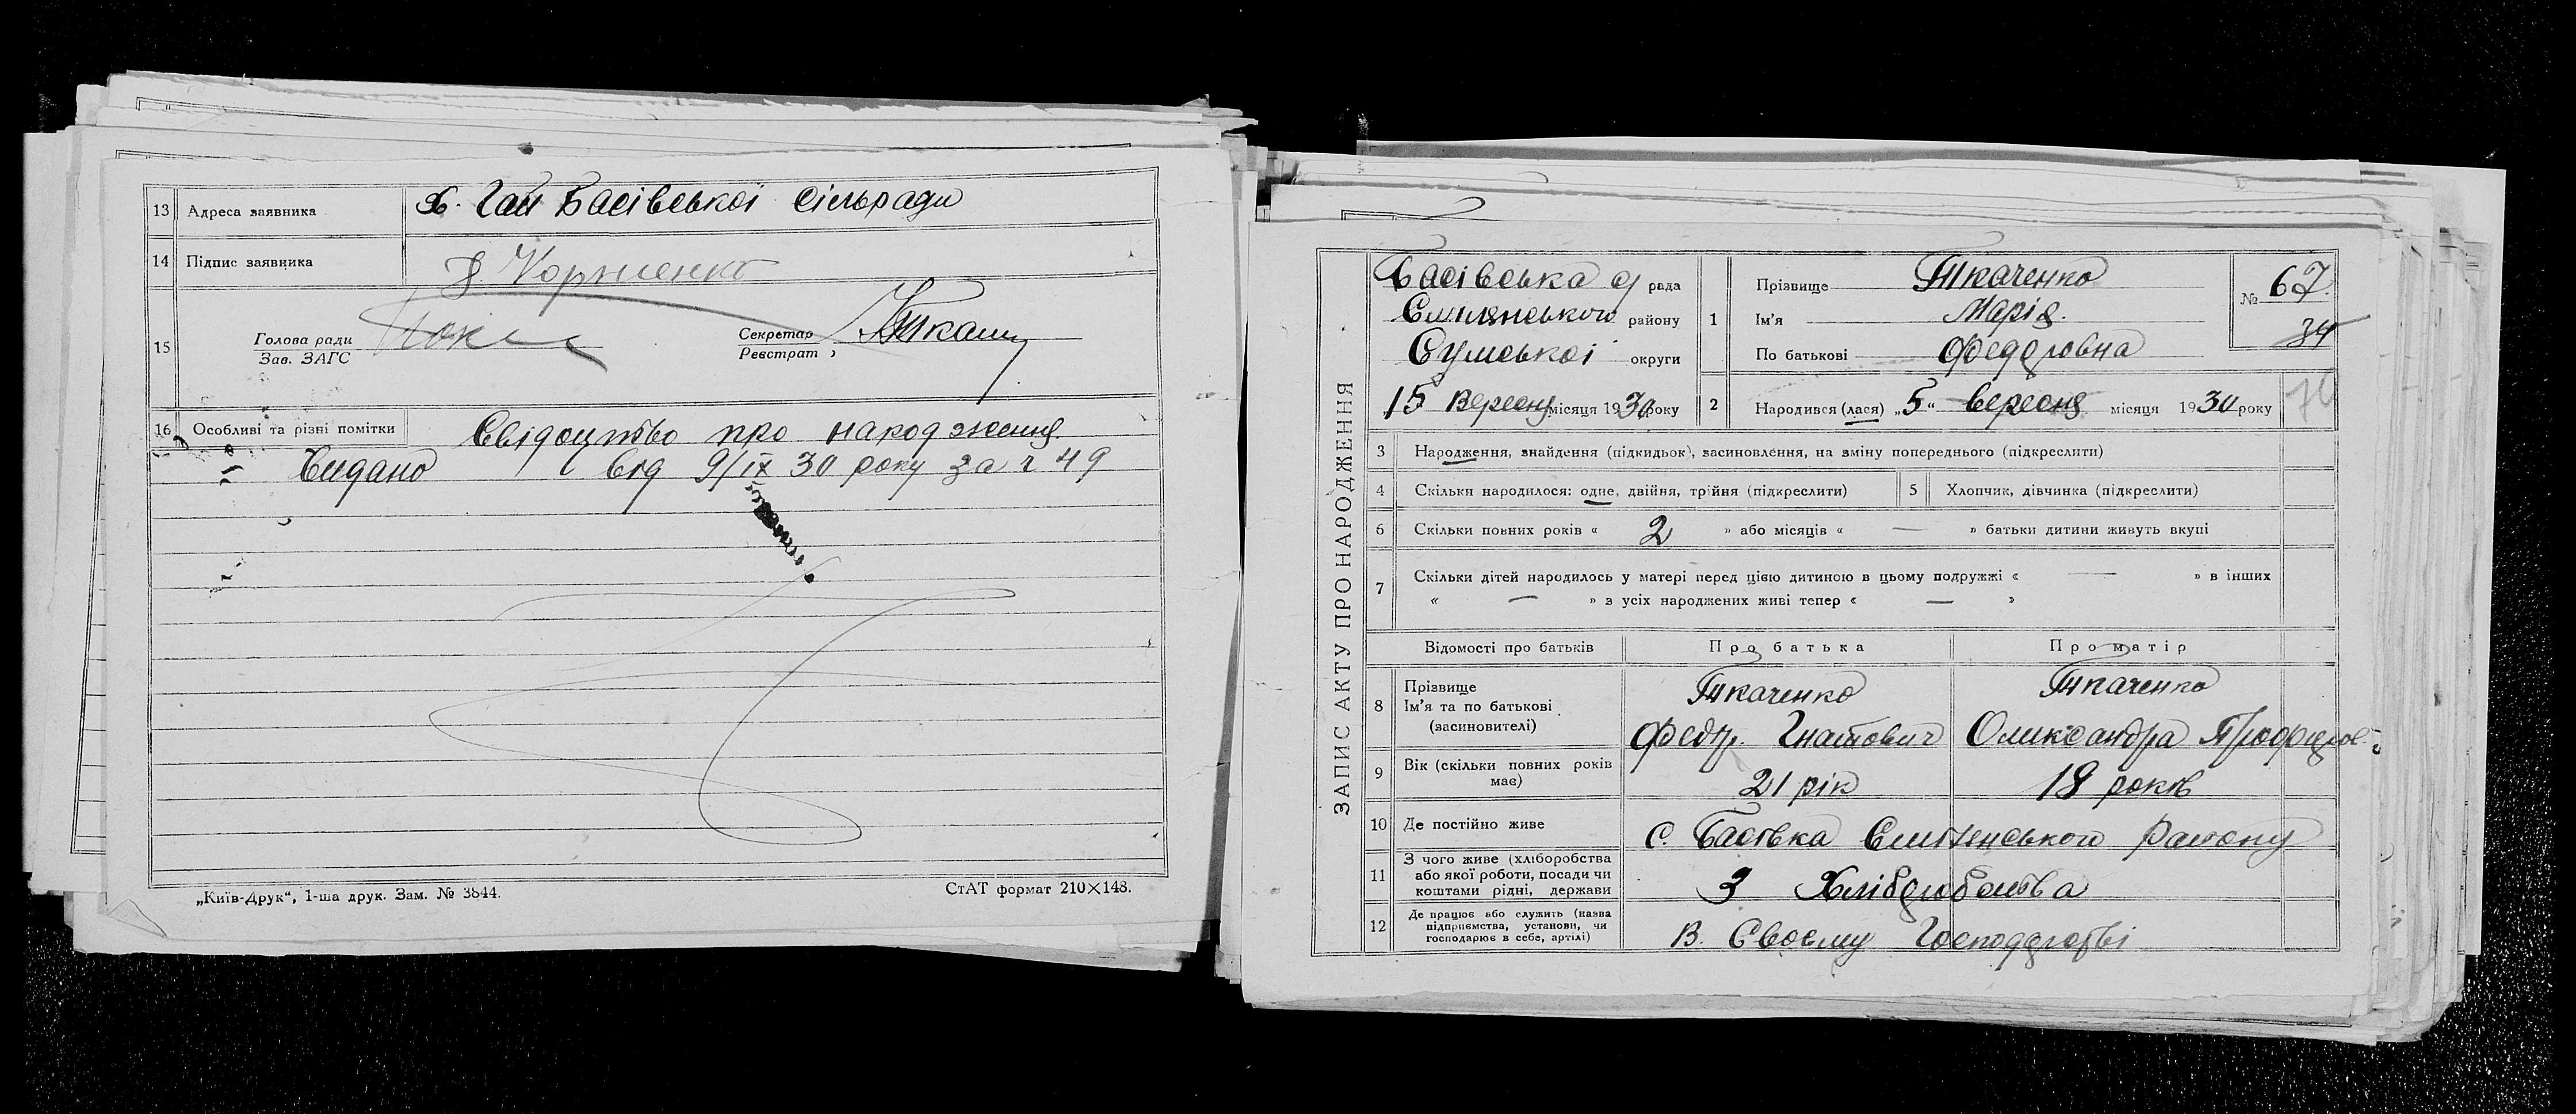 13 Адреса заявника х. Гаи Басівської сільради
14 Підпис заявника Корниенко
15 Голова ради
Зав. ЗАГС
Секретар
Реєстрат
16 Особливі та різні помітки Свідоцтво про народження
Видано від 9/ІХ 30 року за ч 49
„Київ-Друк“, 1-ша друк. Зам. № 3844.
СтАТ формат 210×148.
ЗАПИС АКТУ ПРО НАРОДЖЕННЯ
Басівська с/ рада
Сміляньського району
Сумської округи
15 Вересня місяця 1930 року
1 Прізвище Ткаченко
Ім'я Марія.
По батькові Федоровна
№ 67.
34
2 Народився (лася) „5“ вересня місяця 1930 року
74
3 Народження, знайдення (підкидьок), засиновлення, на зміну попереднього (підкреслити)
4 Скільки народилося: одне, двійня, трійня (підкреслити)
5 Хлопчик, дівчинка (підкреслити)
6 Скільки повних років « 2 » або місяців « — » батьки дитини живуть вкупі
7 Скільки дітей народилось у матері перед цією дитиною в цьому подружжі « — » в інших
« — » з усіх народжених живі тепер « — »
Відомості про батьків Про батька Про матір
8 Прізвище Ткаченко Ткаченко
Ім'я та по батькові
(засиновителі) Федір. Гнатович Олександра
9 Вік (скільки повних років має) 21 рік 18 років
10 Де постійно живе с. Басівка Смілянського Району
11 З чого живе (хліборобства
або якої роботи, посади чи
коштами рідні, держави З Хліборобства
12 Де працює або служить (назва
підприємства, установи, чи
господарює в себе, артілі) В. Своєму Господарстві